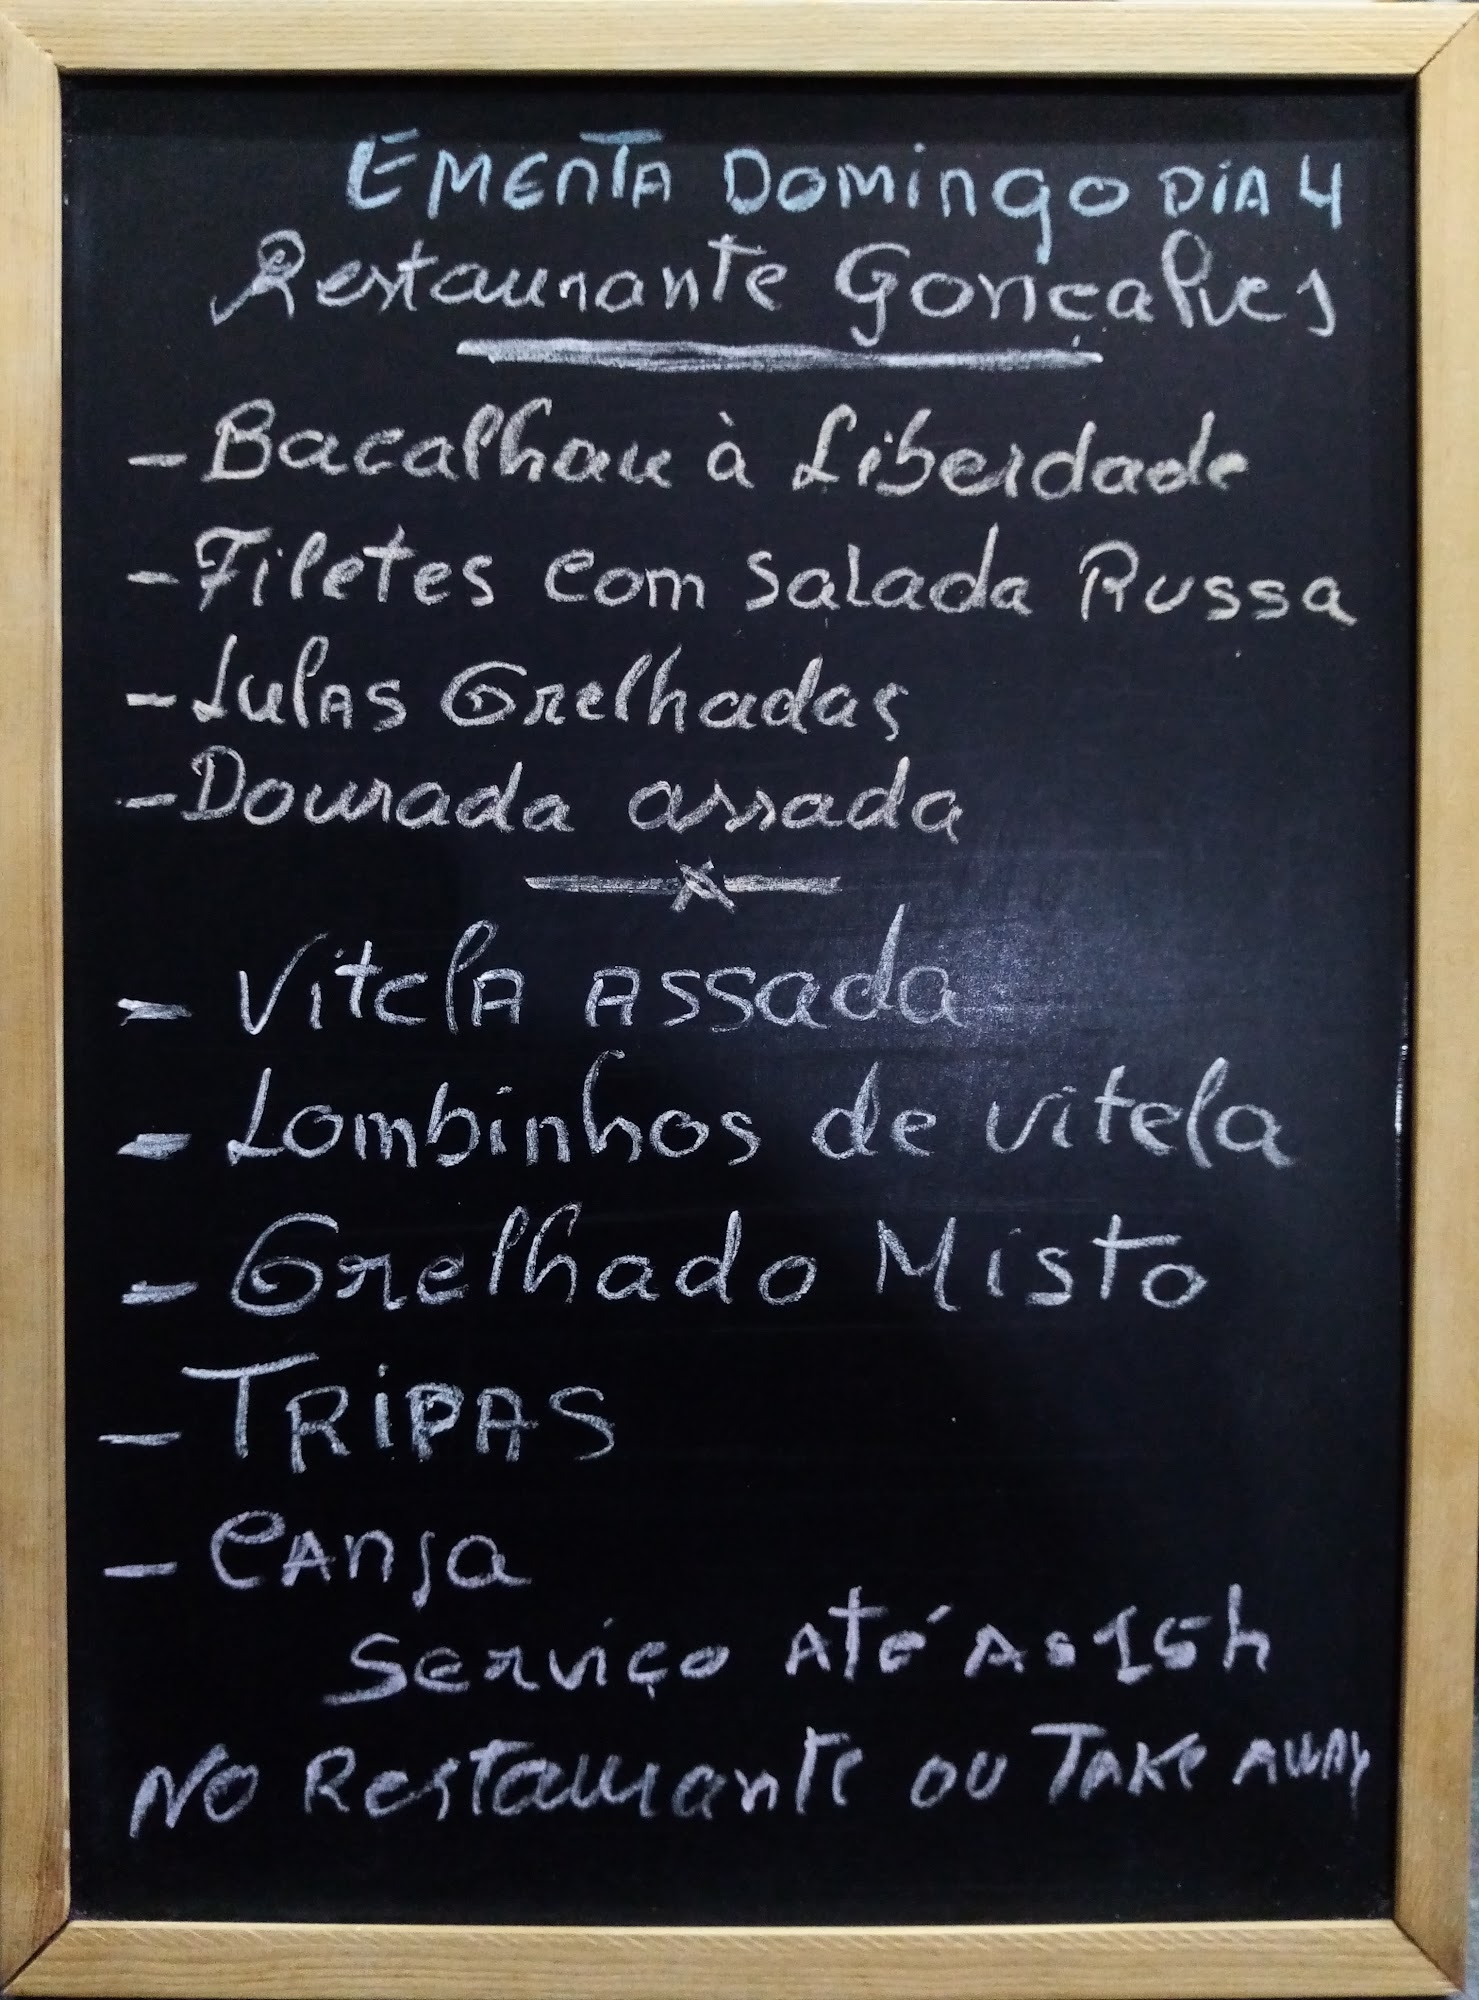 EMENTA DOMINGO DIA 4
Restaurante Gonçalves
- Bacalhau à Liberdade
- Filetes com Salada Russa
- Lulas Grelhadas
- Dourada assada
- Vitela Assada
- Lombinhos de vitela
- Grelhado Misto
- TRIPAS
- Canja
Serviço Até As 15h
No Restaurante ou TAKE AWAY